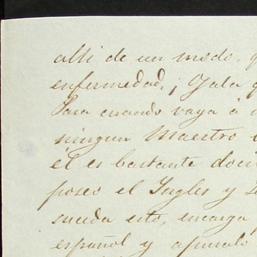 alli de un modo. q
enfermedad, ¡Ojala q
Para cuando vaya á
ningun Maestro
el es bastante doci
poseo el Ingles y
suceda esto, encarga
español y apunalo